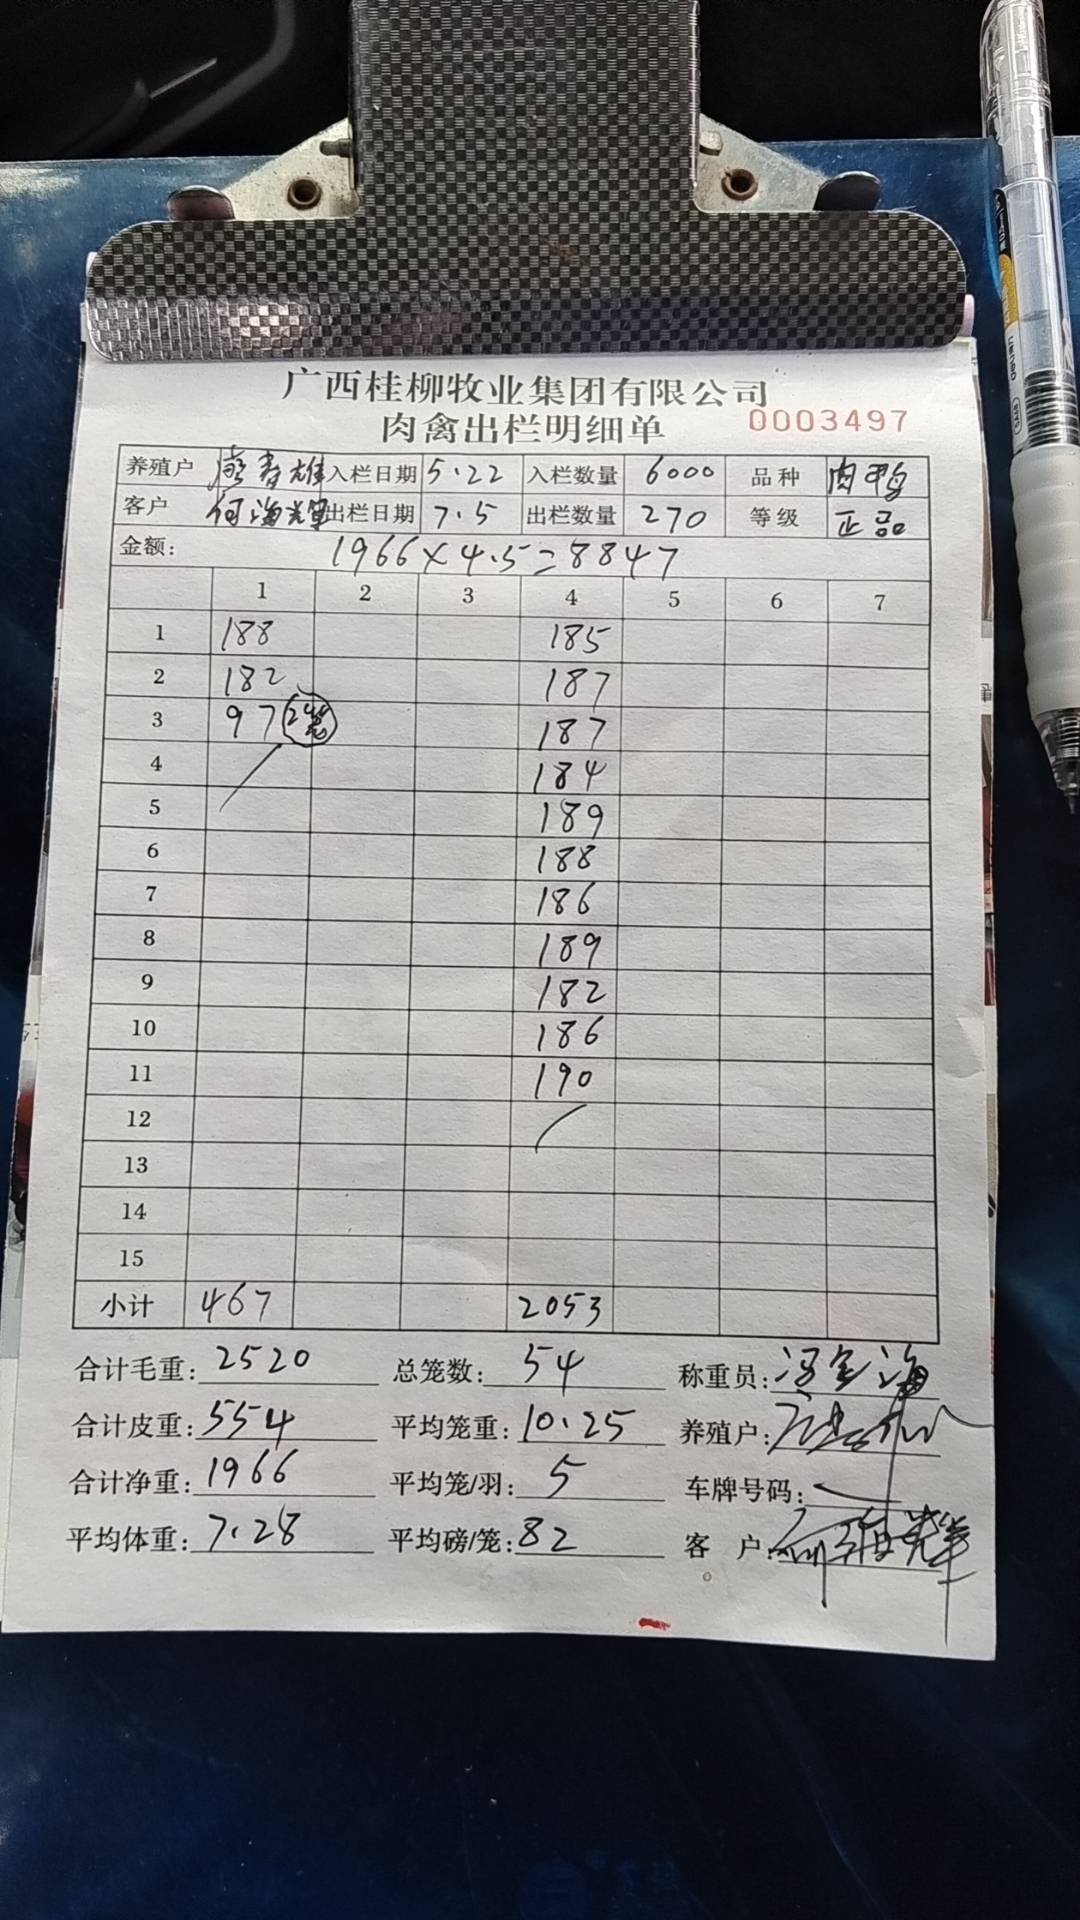 广西桂柳牧业集团有限公司
肉禽出栏明细单 0003497
养殖户 入栏日期 5.22 入栏数量 6000 品种 肉鸭
客户 何海辉 出栏日期 7.5 出栏数量 270 等级 正品
金额: 1966×4.5=8847
1 2 3 4 5 6 7
1 188 185
2 182 187
3 97 2笼 187
4 184
5 189
6 188
7 186
8 189
9 182
10 186
11 190
12
13
14
15
小计 467 2053
合计毛重: 2520 总笼数: 54 称重员:
合计皮重: 554 平均笼重: 10.25 养殖户:
合计净重: 1966 平均笼/羽: 5 车牌号码:
平均体重: 7.28 平均磅/笼: 82 客 户: 何海辉
deli